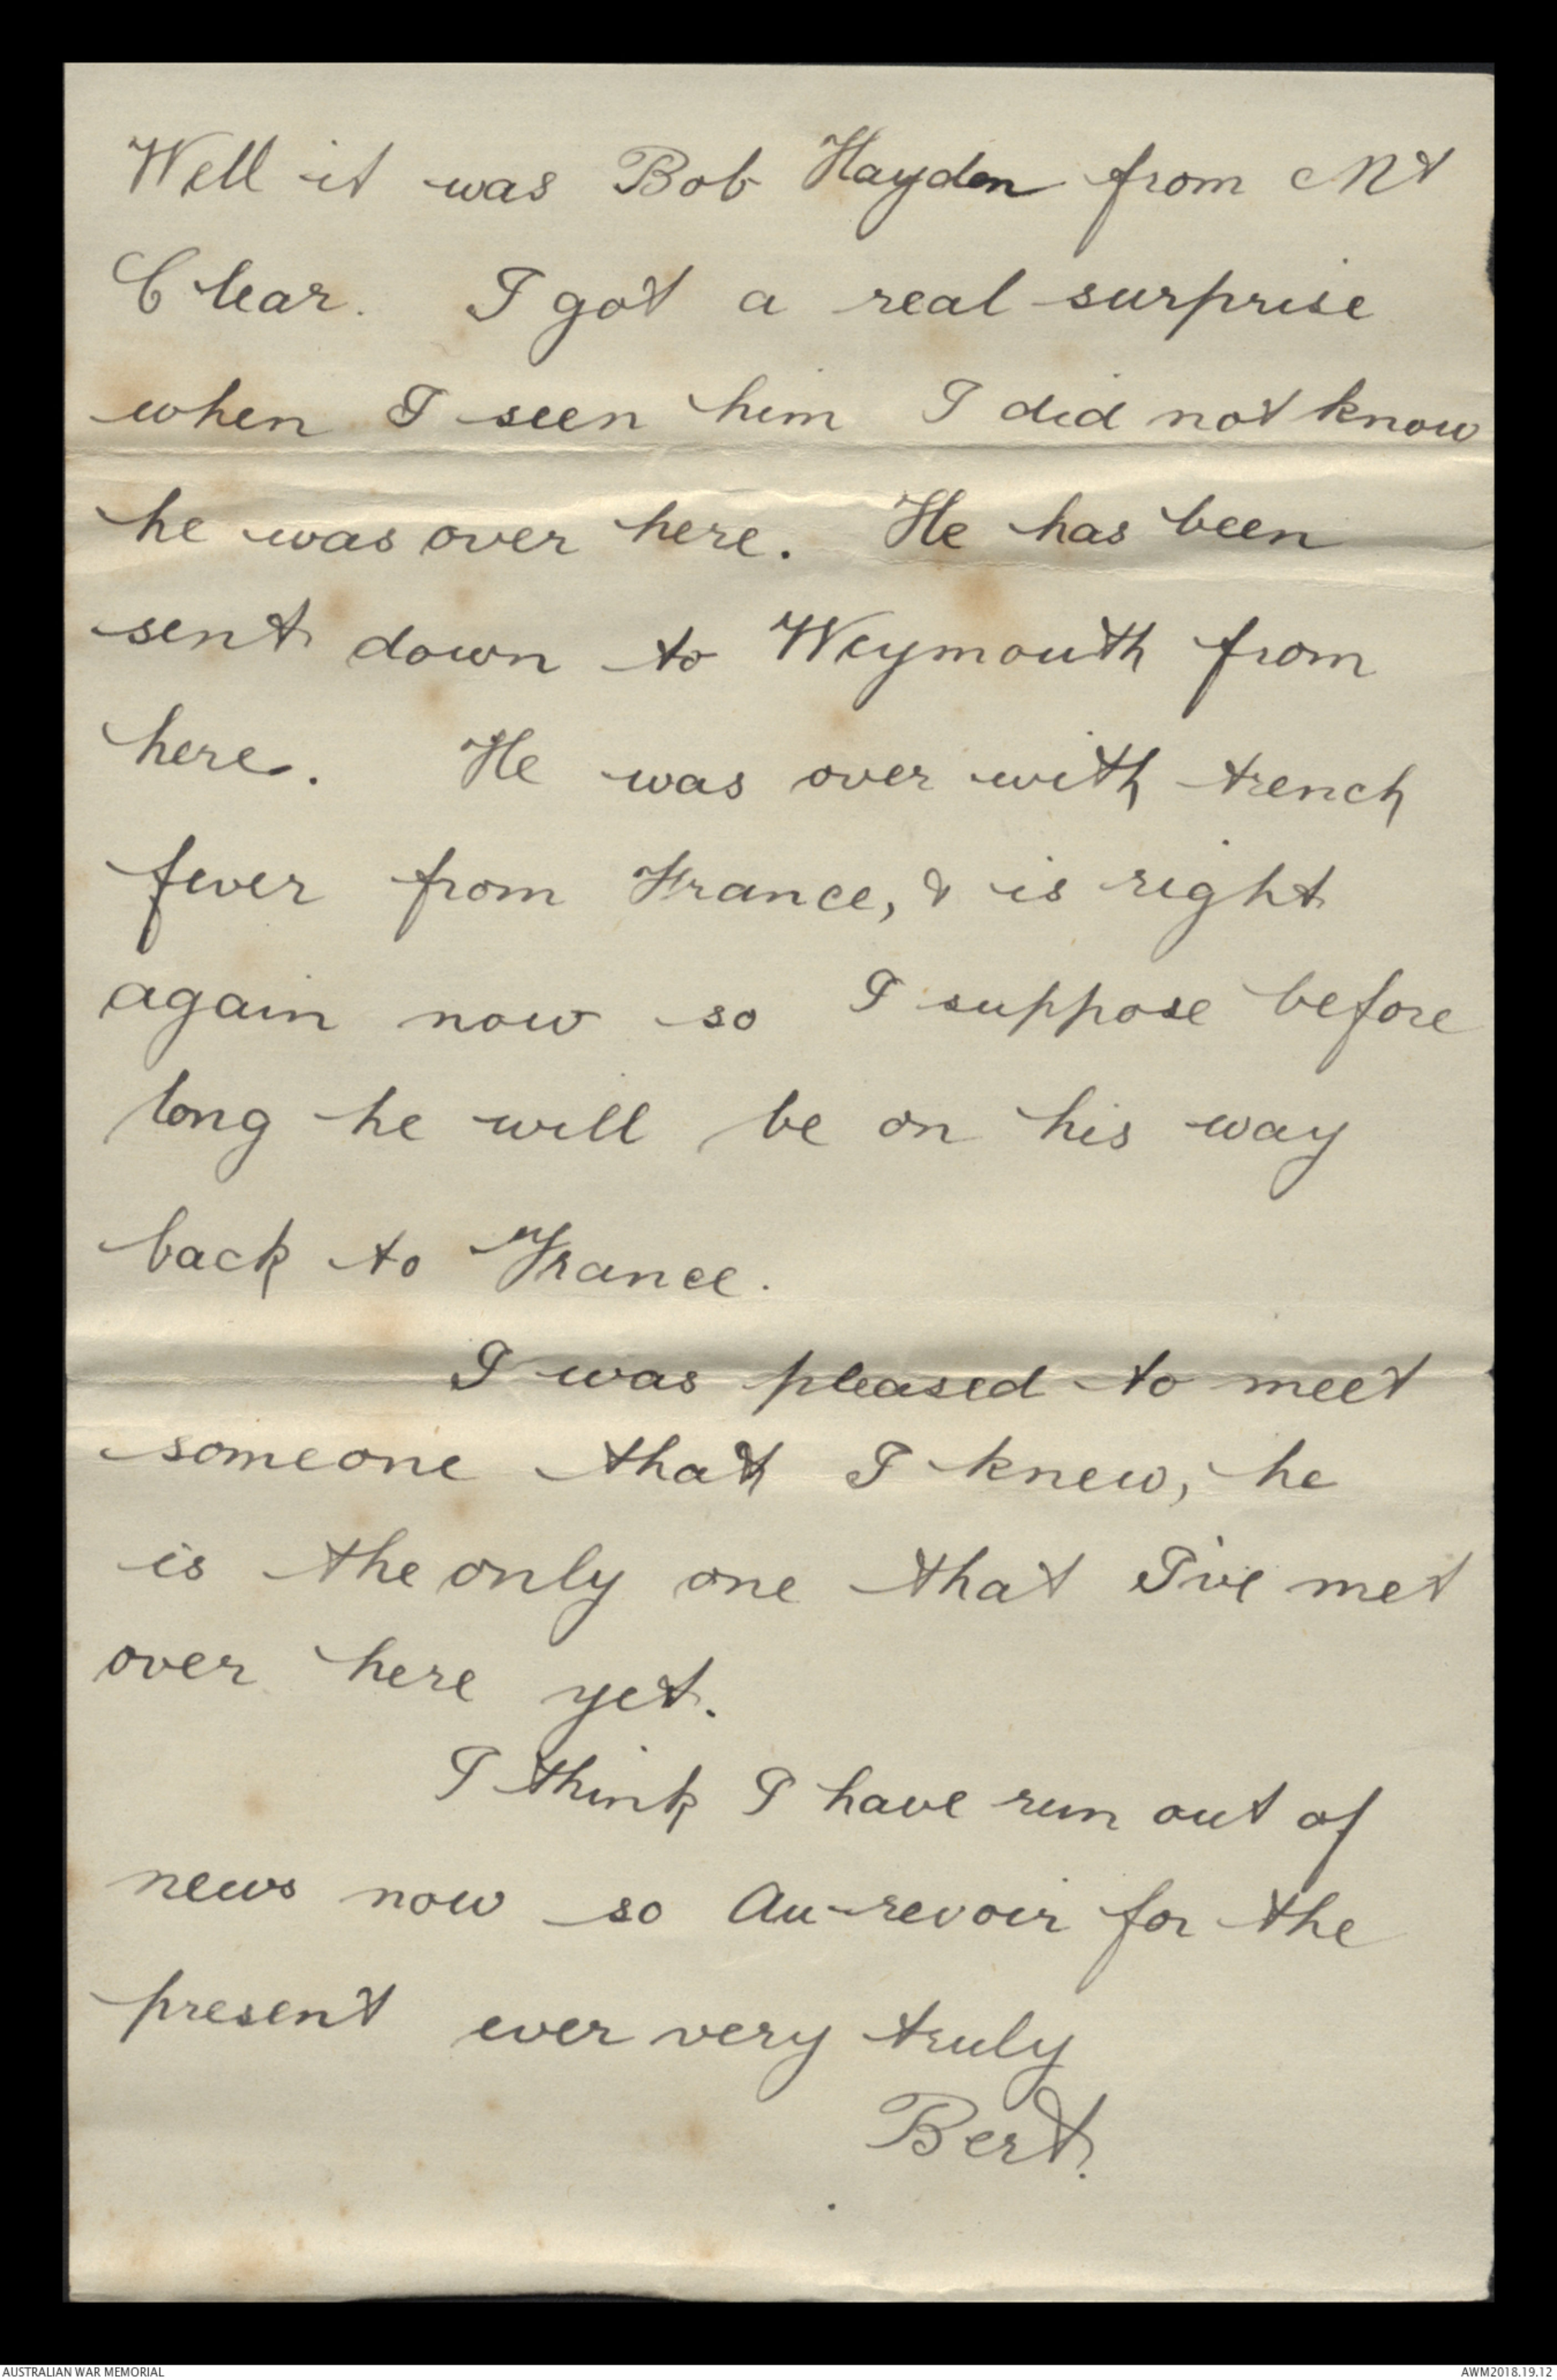 Well it was Bob Hayden from Mt
Clear. I got a real surprise
when I seen him I did not know
he was over here. He has been
sent down to Weymouth from
here. He was over with trench
fever from France, & is right
again now so I suppose before
long he will be on his way
back to France.
I was pleased to meet
someone that I knew, he
is the only one that I've met
over here yet.
I think I have run out of
news now so Au-revoir for the
present ever very truly
Bert.
AUSTRALIAN WAR MEMORIAL
AWM2018.19.12